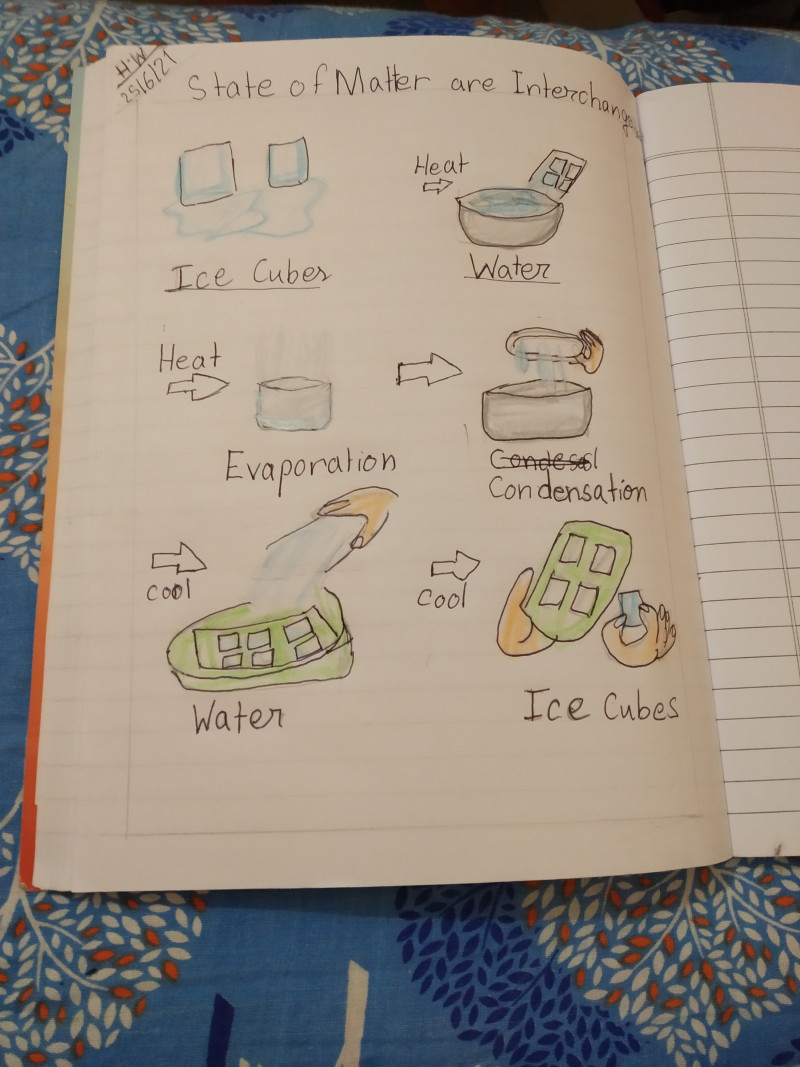 H.W
25/6/21
State of Matter are Interchange
Heat
Ice Cubes
Water
Heat
Evaporation
Condensation
cool
cool
Water
Ice Cubes